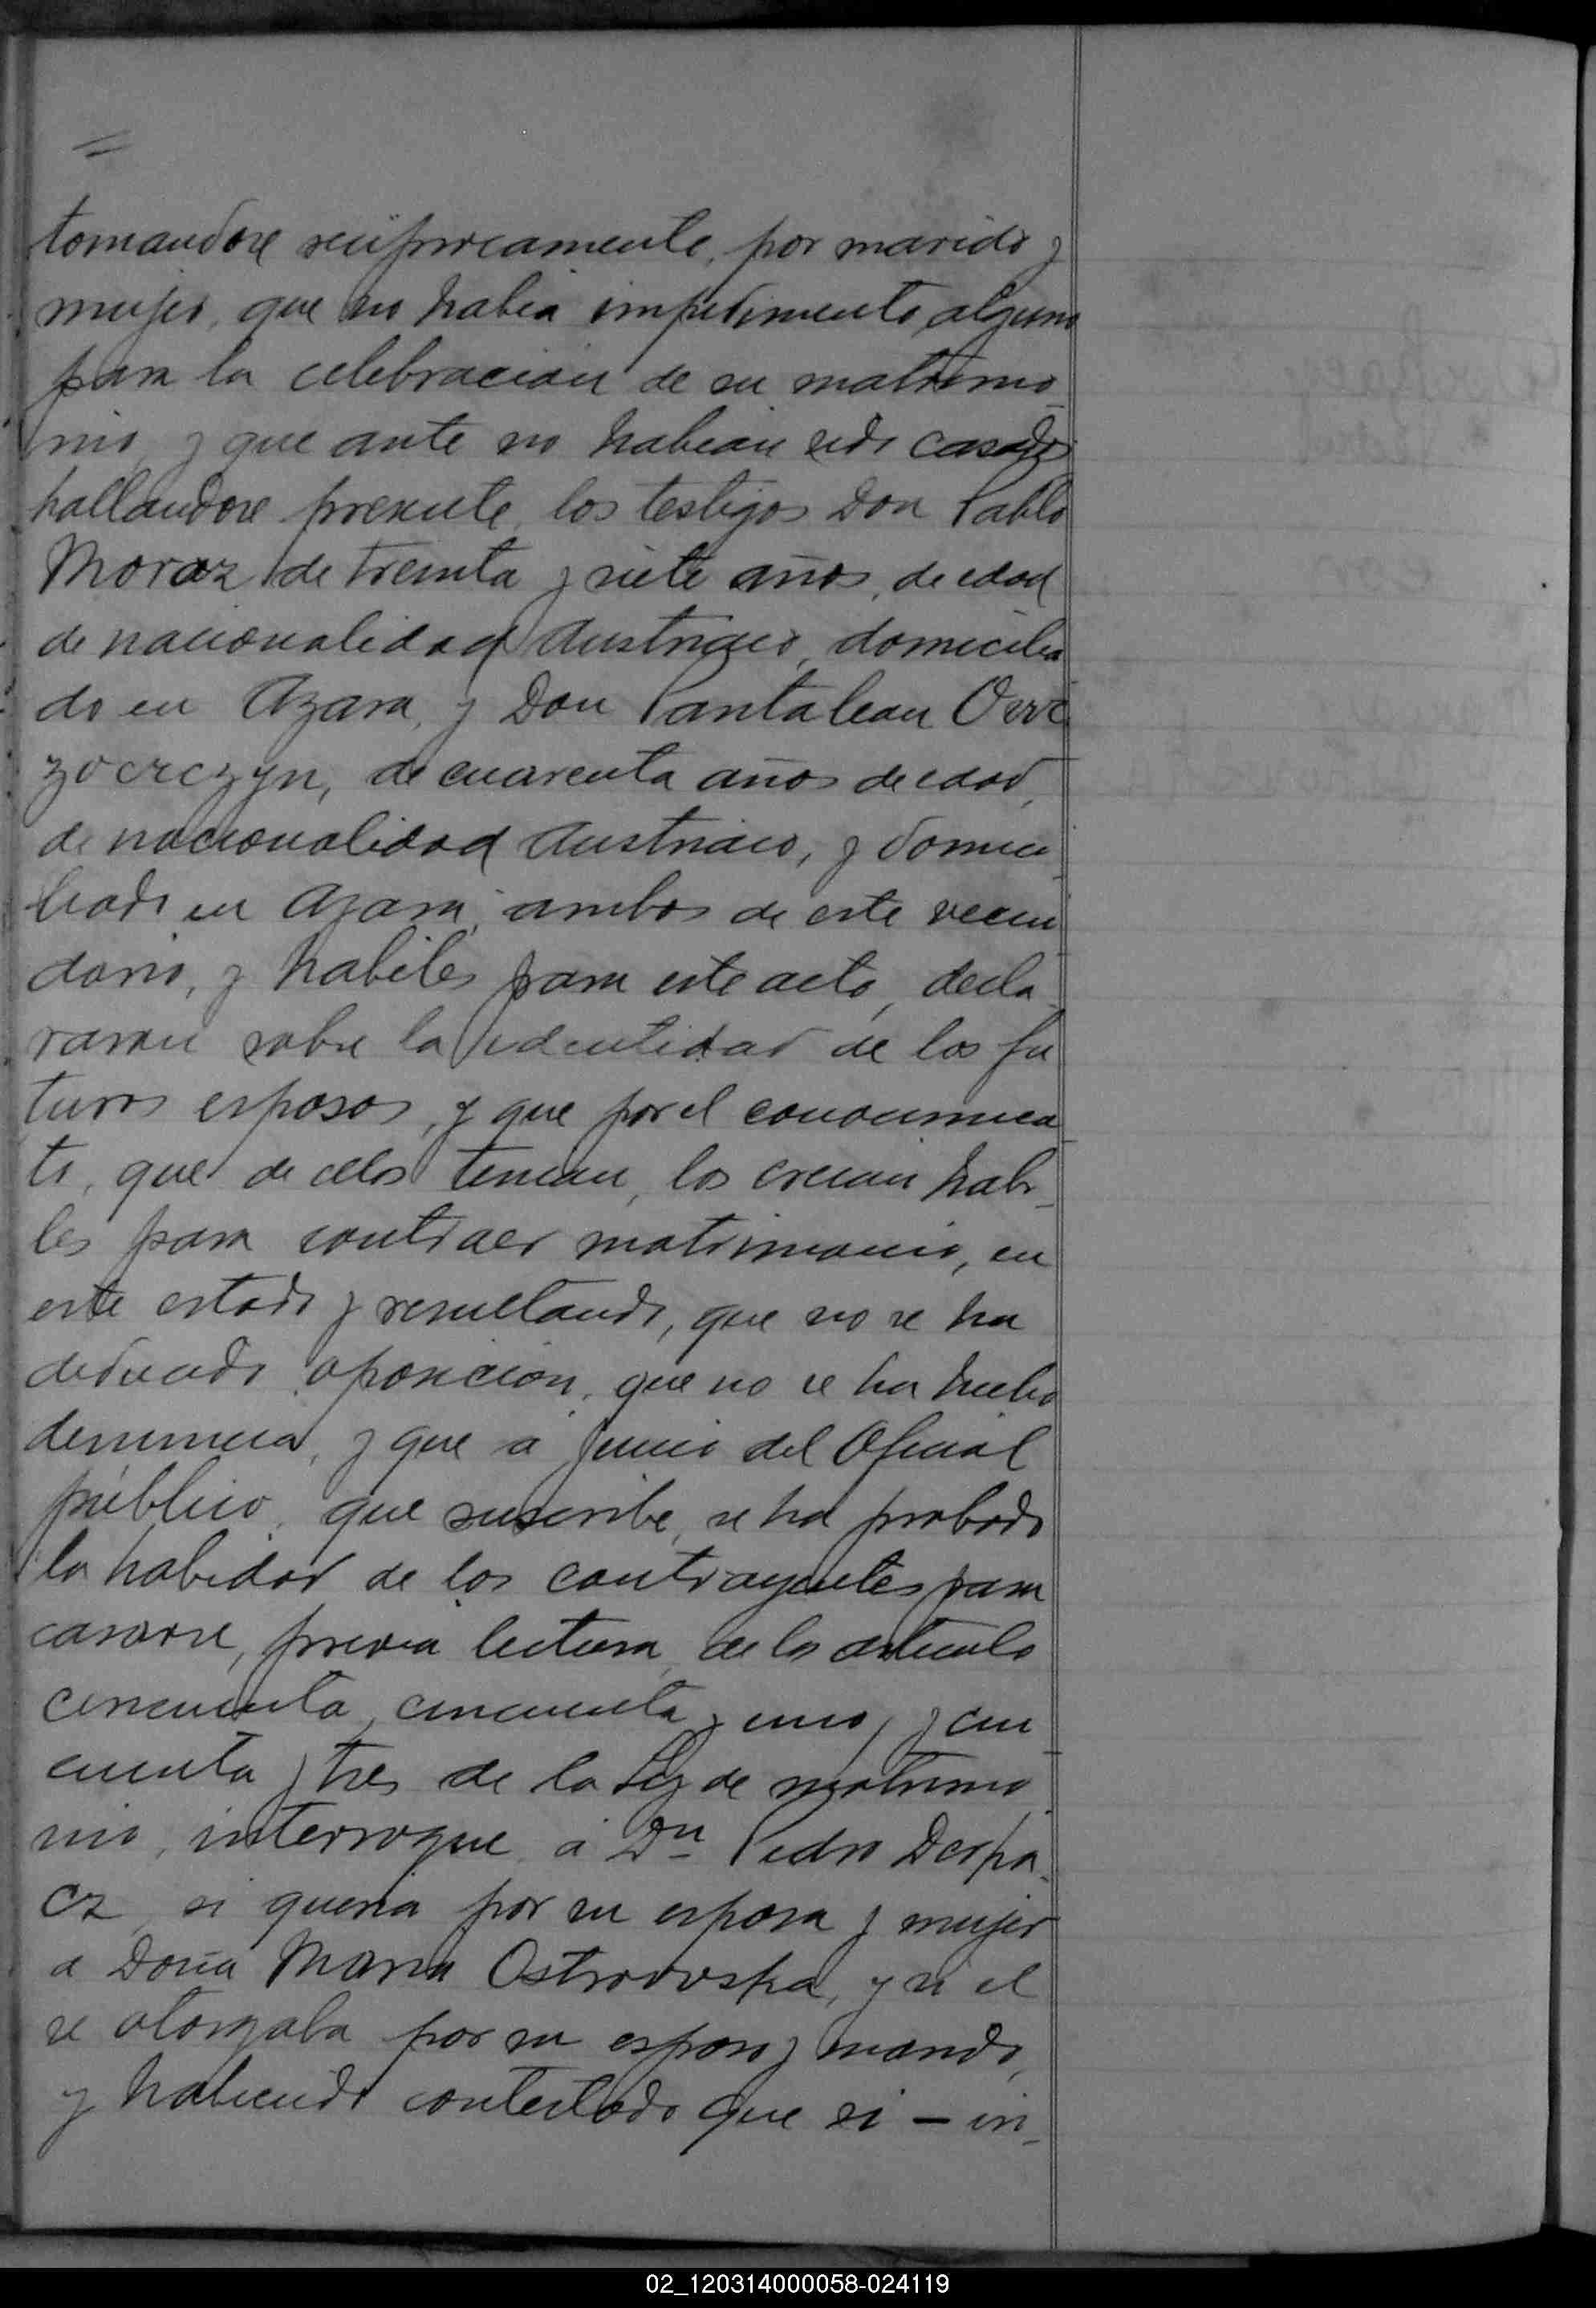 tomandose reciprocamente, por marido y
mujer, que no habia impedimento alguno
para la celebracion de su matrimo_
nio, y que ante no habian sido casados
hallandose presente, los testigos Don Pablo
Moroz de treinta y siete años, de edad
de nacionalidad Austriaco, domicilia
do en Azara, y Don Pantalean
zocrczyn, de cuarenta años de edad,
de nacionalidad Austriaco, y domici_
liado en Azara, ambos de este vecin_
dario, y habiles para este acto, decla_
raron sobre la identidad de los fu
turos esposos, y que por el conocimien
to, que de ellos tenian, los creian habi_
les para contraer matrimonio, en
este estado y resultando, que no se ha
deducido oposicion, que no se ha hecho
denuncia, y que a juicio del Oficial
público, que suscribe, se ha probado
la habidad de los contrayentes para
casarse, previa lectura, de los articulo
cincuenta, cincuenta y uno, y cin_
cuenta y tres de la Ley de matrimo_
nio, interroque, á Dn Pedro Derpa_
cz, si queria por su esposa y mujer
a Doña Maria Ostrowska, y si el
se otorgaba por su esposo y marido,
y habiendo contestado que si – in_
02_120314000058-024119